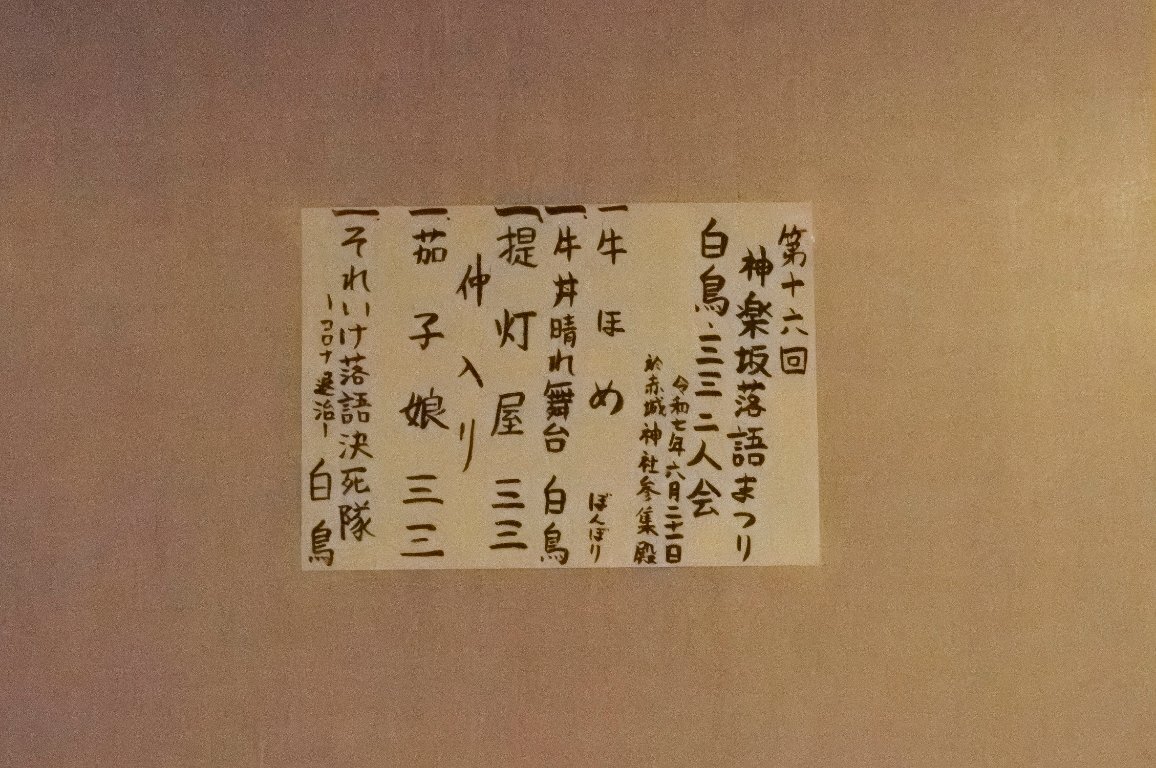 第十六回
神楽坂落語まつり
白鳥、三三 二人会
令和七年六月二十一日
於 赤城神社参集殿
一 牛ほめ ぼんぼり
一 牛丼晴れ舞台 白鳥
一 提灯屋 三三
仲入り
一 茄子娘 三三
一 それいけ落語決死隊
ーコロナ退治ー 白鳥